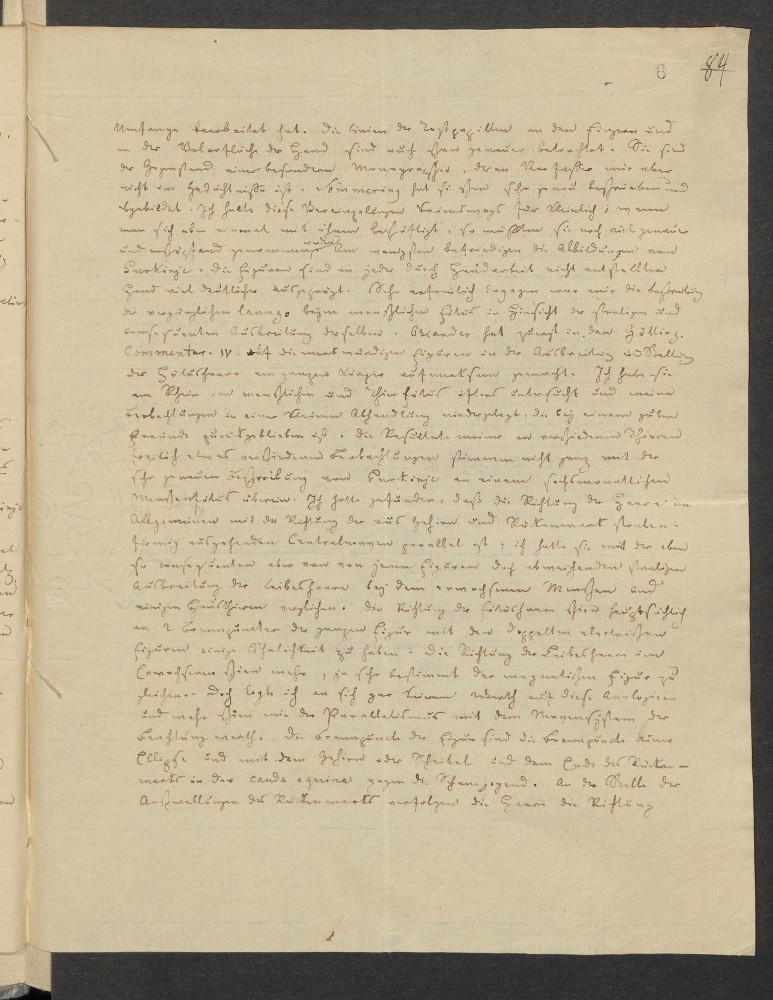 6 84
Umfange bearbeitet hat. Die Linien der Tastpapillen an den Fingern und
in der Volarfläche der Hand sind auch schon genauer betrachtet. Sie sind
der Gegenstand einer besondern Monographie, deren Verfasser mir aber
nicht im Gedächtnisse ist. Sömmering hat sie schon sehr genau beschrieben und
abgebildet. Ich halte diese Vereinzelungen keineswegs für kleinlich; wenn
man sich aber einmal mit ihnen beschäftigt, so müssten sie noch viel genauer
und erschöpfend genommen werden. Am wenigsten befriedigen die Abbildungen von
Purkinje. Die Figuren sind an jeder durch Handarbeit nicht entstellten
Hand viel deutlicher ausgeprägt. Sehr erfreulich dagegen war mir die Beschreibung
der vorzüglichen lanugo beym menschlichen Fötus in Hinsicht der straligen und
consequenten Ausbreitung derselben. Osiander hat zuerst in den Götting.
Commentar. IV. auf die merkwürdigen Figuren in der Ausbreitung und Stellung
der Fötushaare am ganzen Körper aufmerksam gemacht. Ich habe sie
am Rhein an menschlichen und Thierfötus öfters untersucht und meine
Beobachtungen in einer kleinen Abhandlung niedergelegt, die bey einem guten
Freunde zurükgeblieben ist. Die Resultate meiner an verschiedenen Thieren
freilich etwas verschiedenen Beobachtungen stimmen nicht ganz mit der
sehr genauen Beschreibung von Purkinje an einem sechsmonatlichen
Menschenfötus überein. Ich hatte gefunden, daß die Richtung der Haare im
Allgemeinen mit der Richtung der aus Gehirn und Rükenmark stralen-
förmig ausgehenden Centralnerven parallel ist; ich hatte sie mit der eben
so consequenten aber von von jenen Figuren doch abweichenden straligen
Ausbreitung der Leibeshaare bey dem erwachsenen Menschen und
einigen Hausthieren verglichen. Die Richtung der Fötushaare schien hauptsächlich
an 2 Brennpuncten der ganzen Figur mit den doppelten electrischen
Figuren einige Aehnlichkeit zu haben. Die Richtung der Leibeshaare im
Erwachsenen schien mehr, ja sehr bestimmt der magnetischen Figur zu
gleichen. Doch legte ich an sich gar keinen Werth auf diese Analogieen
und mehr schien mir der Parallelismus mit dem Nervensystem der
Beachtung werth. Die Brennpuncte der Figur sind die Brennpuncte einer
Ellipse und mit dem Gehirn oder Scheitel und dem Ende des Rüken-
marks in der cauda equina gegen die Schamgegend. An der Stelle der
Anschwellungen des Rükenmarks verfolgen die Haare die Richtung